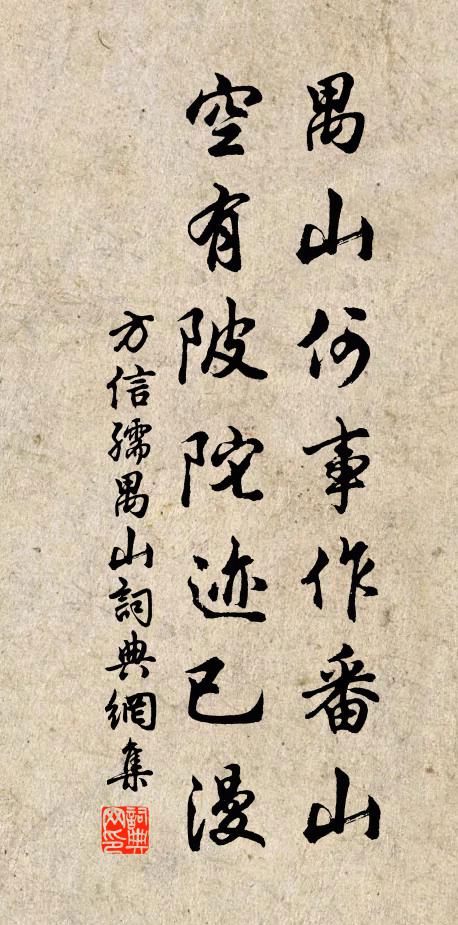 禺山何事作番山
空有陂陀迹已漫
方信孺禺山詞典網集
詞典网印